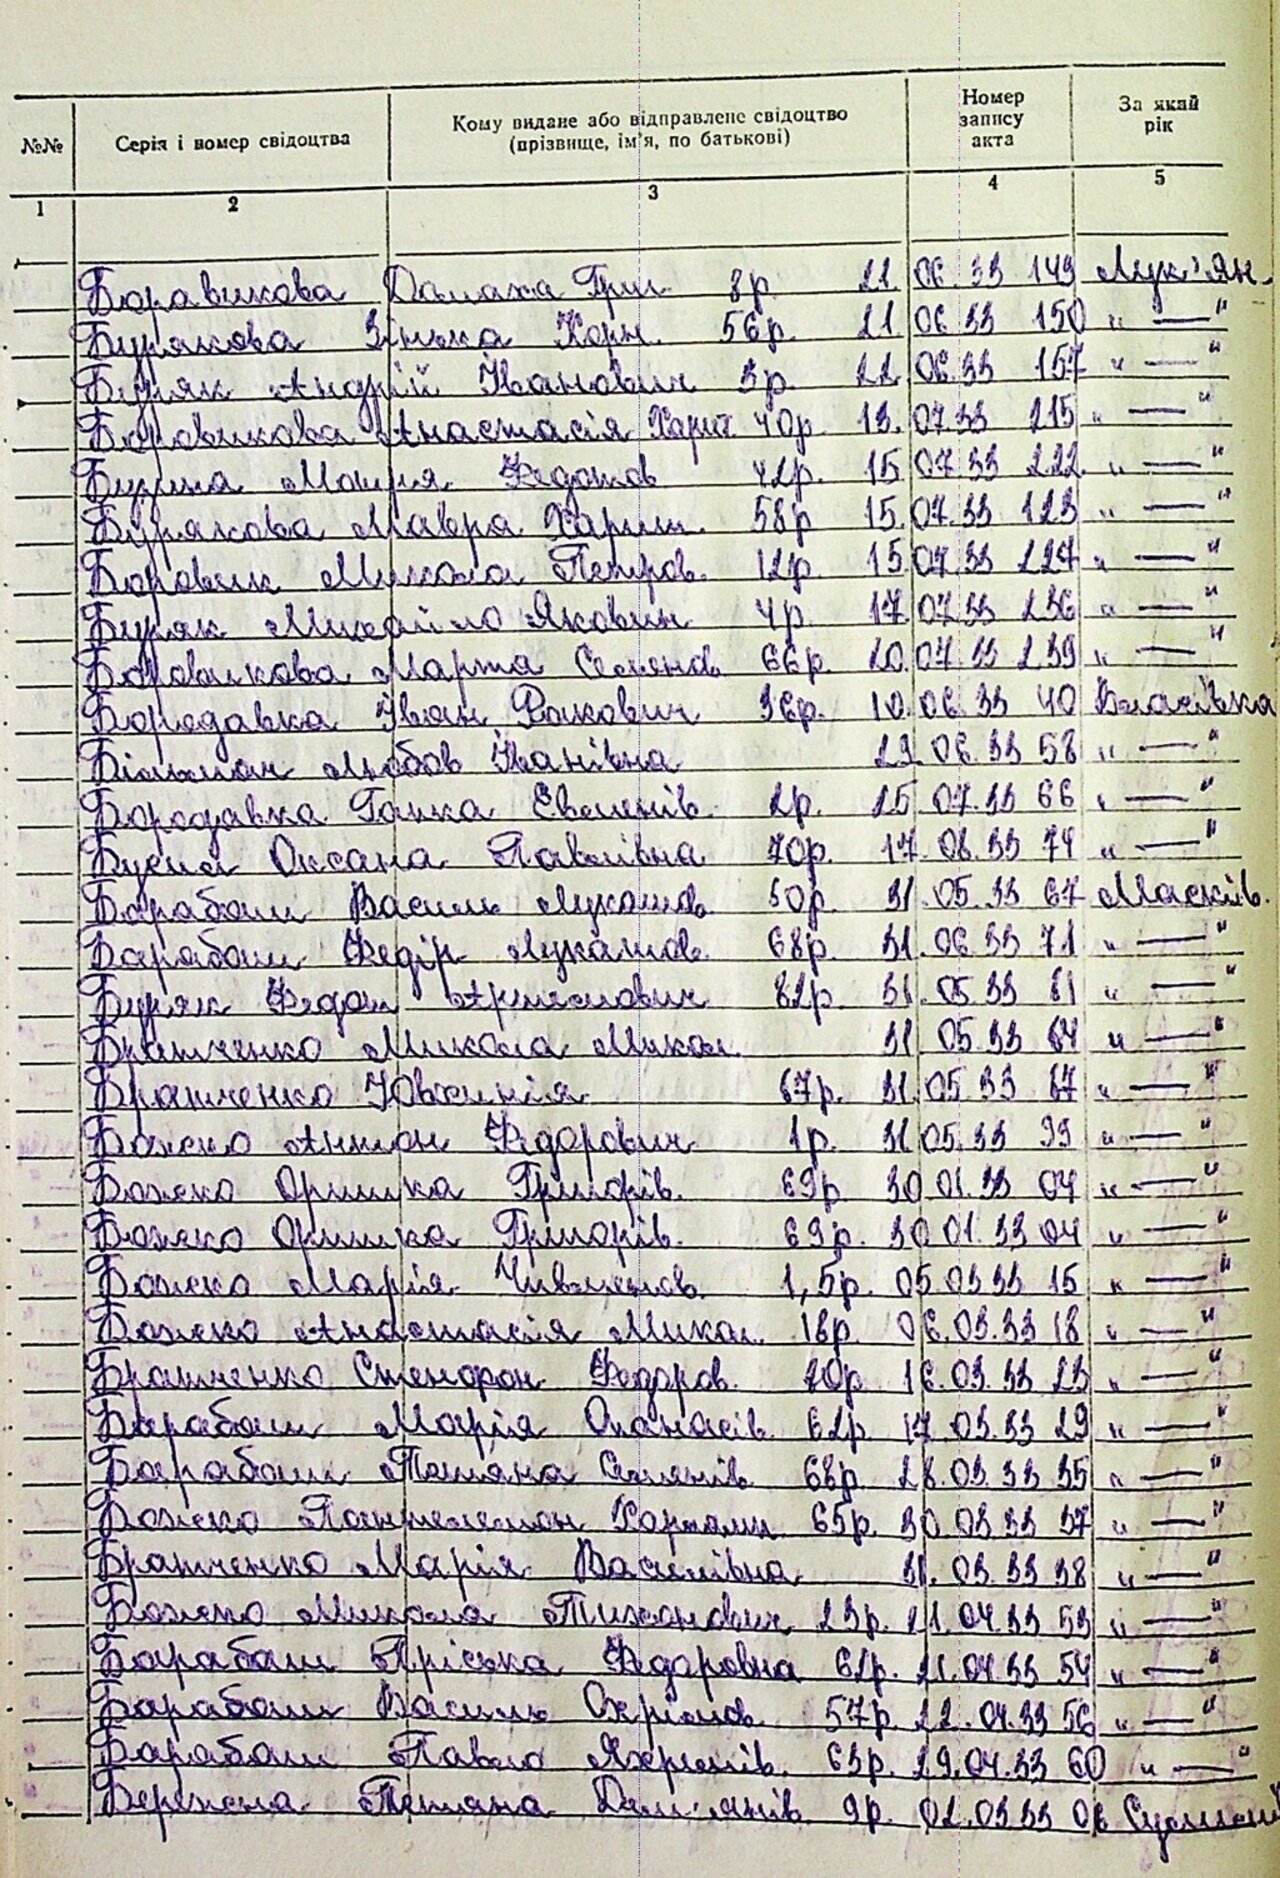 №№ Серія і номер свідоцтва Кому видане або відправлене свідоцтво (прізвище, ім'я, по батькові) Номер запису акта За який рік
1 2 3 4 5
Боравикова Домаха Григ. 8р. 22. 06. 33 149 Лук'ян.
Бурякова Зінька Корн. 56р. 21. 06. 33 150 " — "
Буряк Андрій Іванович 3р. 22 06. 33 157 " — "
Боровикова Анастасія Харит. 40р. 13. 07 33 215 " — "
Марія Федотов 42р. 15 07. 33 222 " — "
Бурякова Мавра Харит. 58р 15. 07. 33 123 " — "
Боровик Микола Петров. 12р. 15 07. 33 227 " — "
Буряк Михайло Якович 4р. 17 07. 33 236 " — "
Боровикова Марта Семенов 66р. 20. 07. 33 239 " — "
Бородавка Іван Якович 36р. 10. 06. 33 40 Власівка
Любов Іванівна 29 06. 33 58 " — "
Бородавка Ганна Евгенів. 2р. 25. 07. 33 66 " — "
Оксана Павлівна 70р. 17. 08. 33 74 " — "
Барабаш Василь Лукашов. 50р. 31. 05. 33 67 Маськів.
Барабаш Федір Лукашов. 68р. 31. 06. 33 71 " — "
Буряк Федот Артемович 82р. 31. 05. 33 81 " — "
Братченко Микола Микол. 31. 05. 33 84 " — "
Братченко Ювхимія 67р. 31. 05. 33 87 " — "
Божко Антон Федорович 1р. 31 05. 33 99 " — "
Божко Оришка Григорів. 69р 30 01. 33 04 " — "
Божко Оришка Григорів. 69р. 30 01. 33 04 " — "
Божко Марія 1,5р. 05. 03. 33 15 " — "
Божко Анастасія Микол. 18р. 06. 03. 33 18 " — "
Братченко Федоров. 70р. 16. 03. 33 23 " — "
Барабаш Марія Опанасів. 62р 17. 03. 33 29 " — "
Барабаш Тетяна Семенів. 68р. 28. 03. 33 35 " — "
Божко Пантелемон Харламп. 65р. 30 03. 33 37 " — "
Братченко Марія Василівна 31. 03. 33 38 " — "
Божко Микола Тихонович 23р. 21. 04. 33 53 " — "
Барабаш Пріська Федоровна 62р. 21. 04. 33 54 " — "
Барабаш Василь Охрімов. 57р. 22. 04. 33 56 " — "
Барабаш Павло 63р. 29. 04. 33 60 " — "
Тетяна Дем'янів. 9р. 02. 03. 33 06